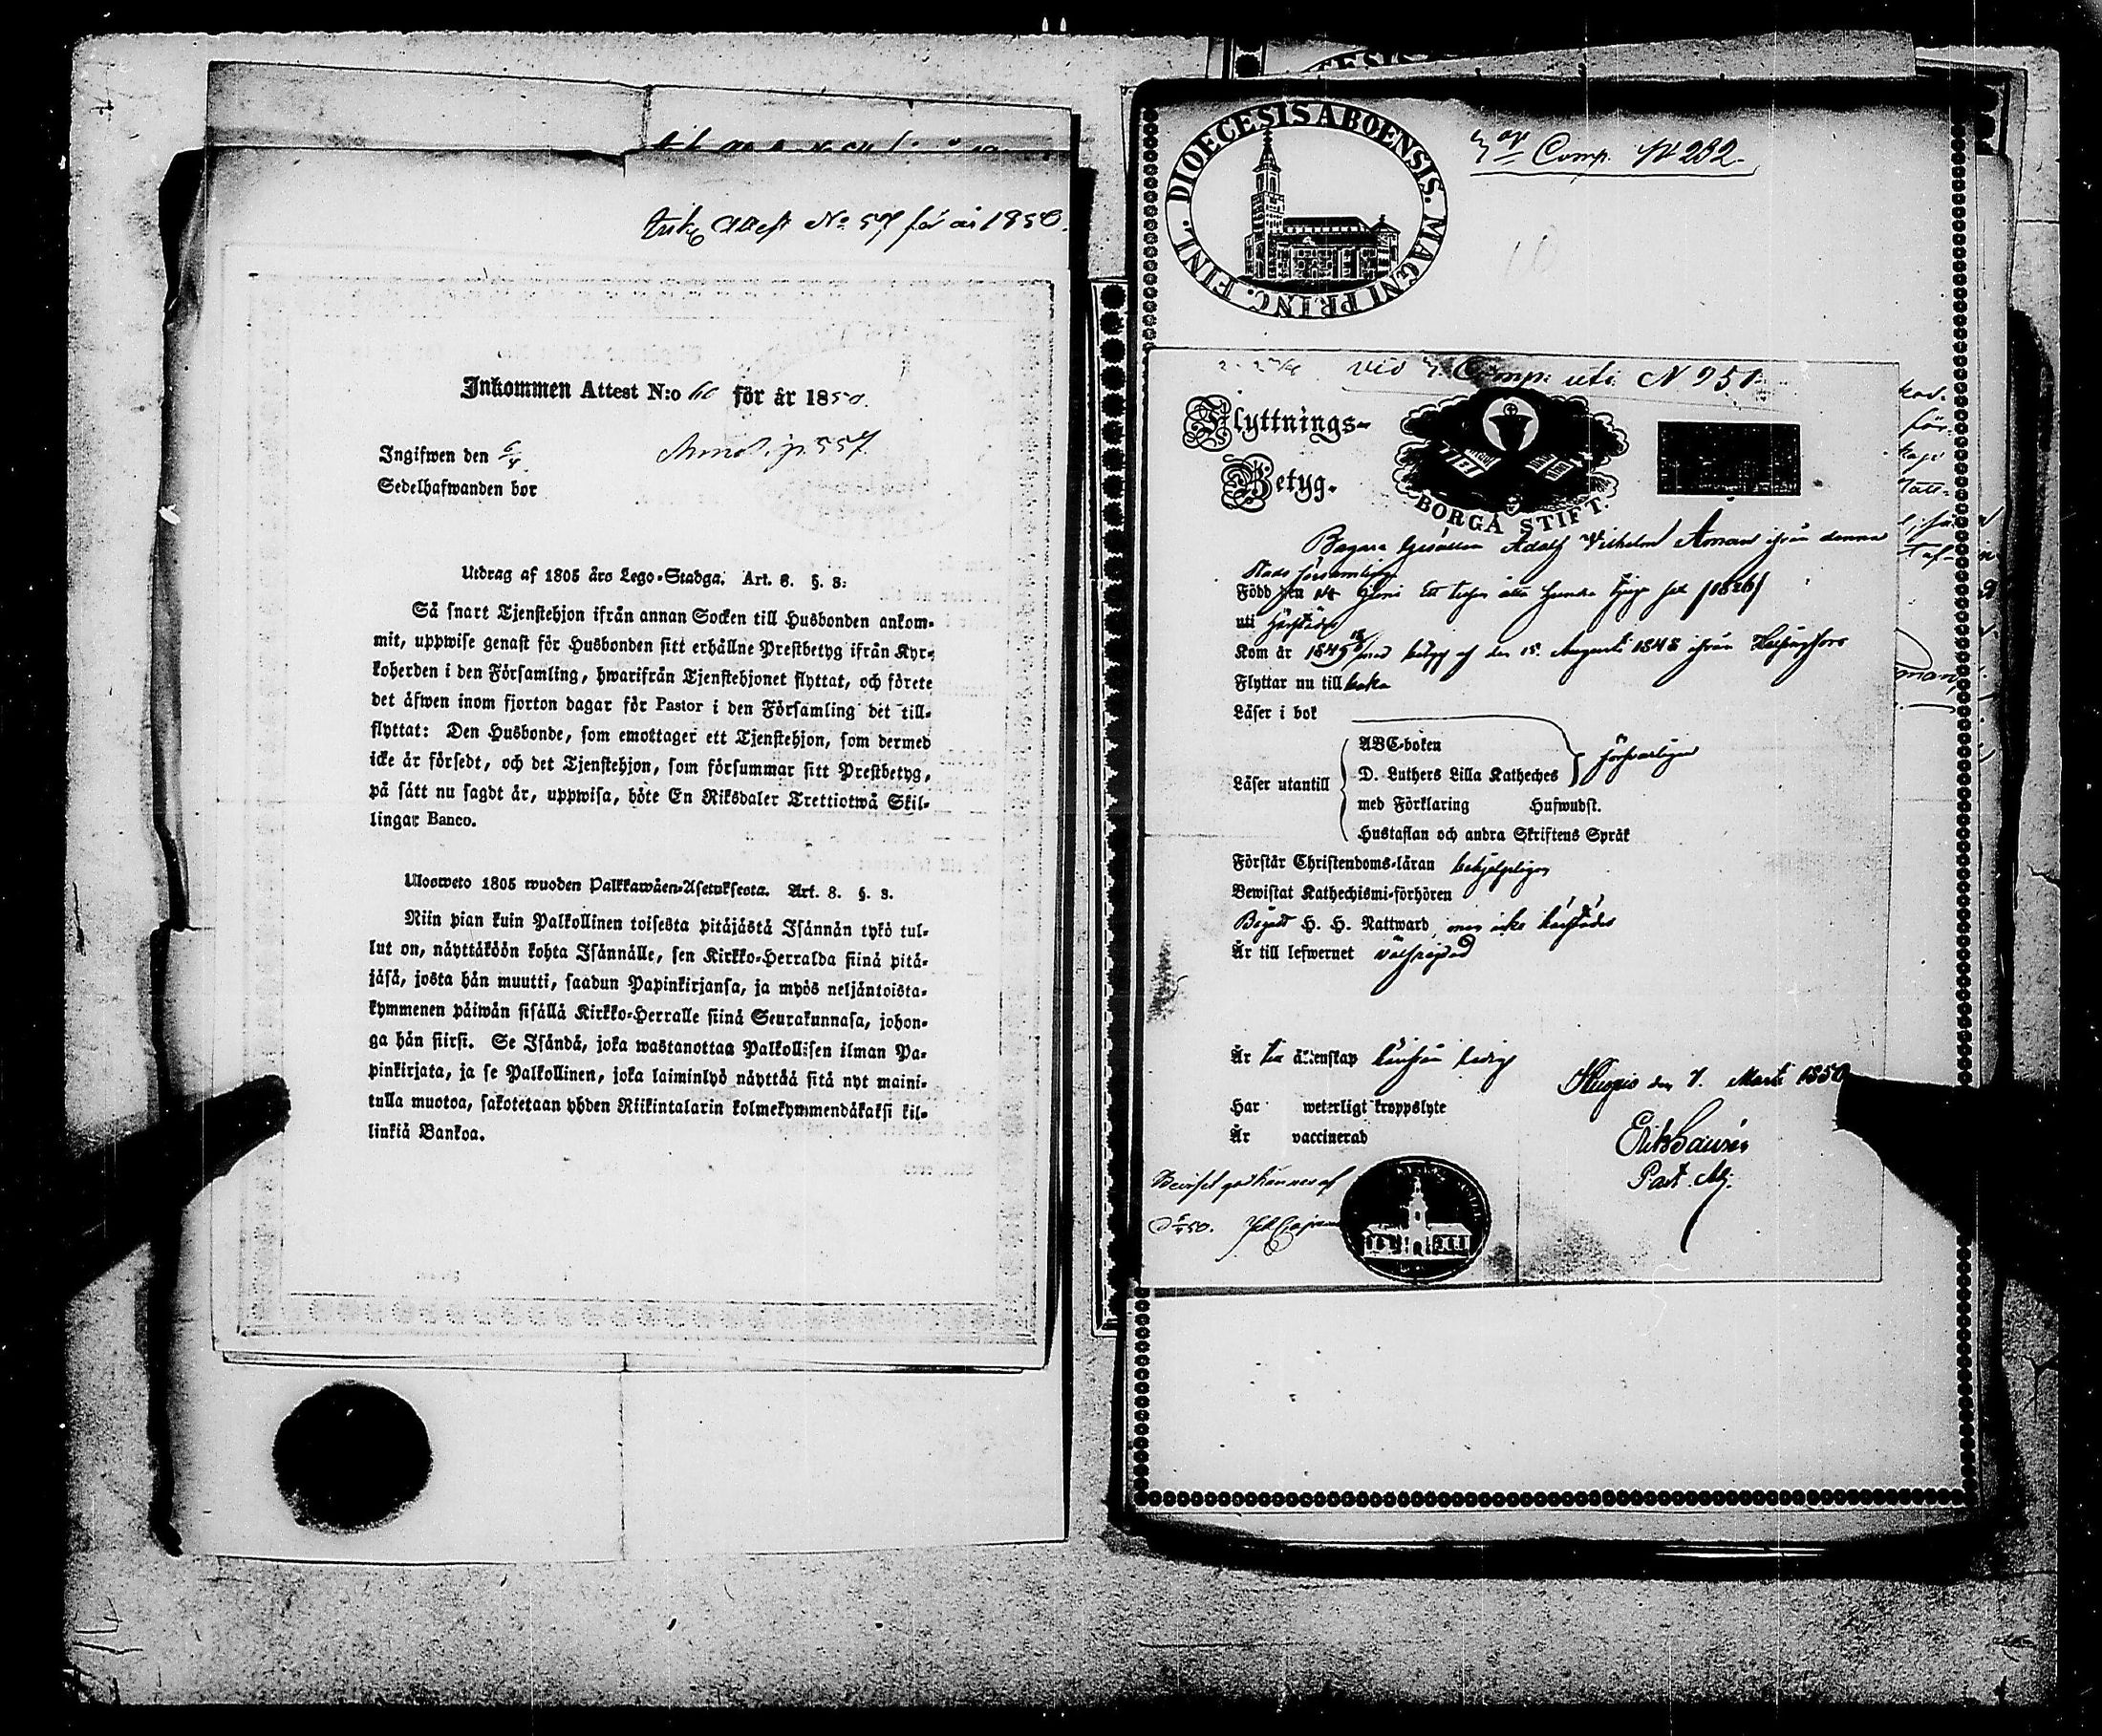 Attest No 57 för år 1850.
Inkommen Attest N:o för år 1850.
Ingifwen den 6/4
p. 557
Sedelhafwanden bor
Utdrag af 1805 års Lego-Stadga. Art. 8. §. 8.
Så snart Tjenstehjon ifrån annan Socken till Husbonden ankom-
mit, uppwise genast för Husbonden sitt erhållne Prestbetyg ifrån Kyr-
koherden i den Församling, hwarifrån Tjenstehjonet flyttat, och förete
det äfwen inom fjorton dagar för Pastor i den Församling det till-
flyttat: Den Husbonde, som emottager ett Tjenstehjon, som dermed
icke är försedt, och det Tjenstehjon, som försummar sitt Prestbetyg,
på sätt nu sagdt är, uppwisa, böte En Riksdaler Trettiotwå Skil-
lingar Banco.
Ulosweto 1805 wuoden Palkkawäen-Asetuksesta. Art. 8. §. 8.
Niin pian kuin Palkollinen toisesta pitäjästä Isännän tykö tul-
lut on, näyttäköön kohta Isännälle, sen Kirkko-Herralda siinä pitä-
jäsä, josta hän muutti, saadun Papinkirjansa, ja myös neljäntoista-
kymmenen päiwän sisällä Kirkko-Herralle siinä Seurakunnasa, johon-
ga hän siirsi. Se Isändä, joka wastanottaa Palkollisen ilman Pa-
pinkirjata, ja se Palkollinen, joka laiminlyö näyttää sitä nyt maini-
tulla muotoa, sakotetaan yhden Riikintalarin kolmekymmendäkaksi kil-
linkiä Bankoa.
DIOECESIS ABOENSIS. MAGNI PRINC. FINL.
Comp. No 282.
10
vid Comp: uti N 251
Flyttnings-
Betyg.
BORGÅ STIFT.
Bagare Gesällen Adolf Wilhelm Åman ifrån denna
Stads församling
Född den 14 Junii Ett tusen åtta hundra tjugu sex /1826/
uti Härstädes
Kom år 1845 med betyg af den 15. Augusti 1848 ifrån Helsingfors
Flyttar nu tillbaka
Läser i bok
Läser utantill
ABC-boken
D. Luthers Lilla Katheches försvarligen
med Förklaring Hufwudst.
Hustaflan och andra Skriftens Språk
Förstår Christendoms-läran behjelpligen
Bewistat Kathechismi-förhören
Begått H. H. Nattward, men icke härstädes
Är till lefwernet välfrejdad
Är till äktenskap ledig
Kuopio den 7. Marti 1850
Har weterligt kroppslyte
Är vaccinerad
Past. Adj.
Beviset godkännes af